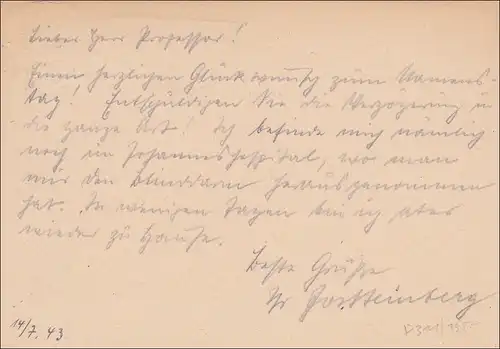 Lieber Herr Professor!
Einen herzlichen Glückwunsch zum Namens-
tag! Entschuldigen Sie die Verzögerung u
die ganze Art! Ich befinde mich nämlich
noch im Johannesspital, wo man
mir den Blinddarm herausgenommen
hat. In wenigen Tagen bin ich aber
wieder zu Hause.
Beste Grüße
Ihr
14/7. 43